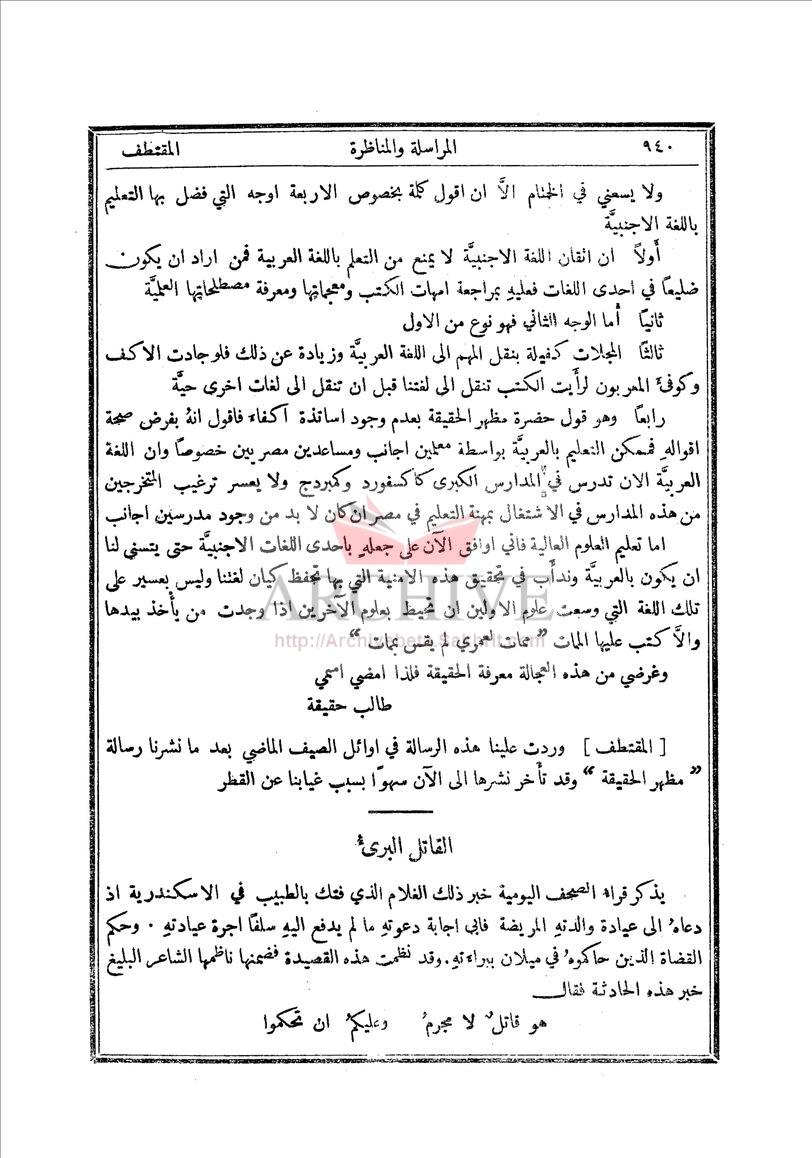 ٩٤٠ المراسلة والمناظرة المقتطف
ولا يسعني في الختام الاَّ ان اقول كلمة بخصوص الاربعة اوجه التي فضل بها التعليم
باللغة الاجنبيَّة
أولاً ان اتقان اللغة الاجنبيَّة لا يمنع من التعلم باللغة العربية فمن اراد ان يكون
ضليعًا في احدى اللغات فعليهِ بمراجعة امهات الكتب ومعجماتها ومعرفة مصطلحاتها العلميَّة
ثانيًا أما الوجه الثاني فهو نوع من الاول
ثالثًا المجلات كفيلة بنقل المهم الى اللغة العربيَّة وزيادة عن ذلك فلو جادت الاكف
وكوفئَ المعربون لرأيت الكتب تنقل الى لغتنا قبل ان تنقل الى لغات اخرى حيَّة
رابعًا وهو قول حضرة مظهر الحقيقة بعدم وجود اساتذة اكفاء فاقول انهُ بفرض صحة
اقوالهِ فممكن التعليم بالعربيَّة بواسطة معلمين اجانب ومساعدين مصريين خصوصًا وان اللغة
العربيَّة الان تدرس في المدارس الكبرى كاكسفورد وكمبردج ولا يعسر ترغيب المتخرجين
من هذه المدارس في الاشتغال بمهنة التعليم في مصر ان كان لا بد من وجود مدرسين اجانب
اما تعليم العلوم العالية فاني اوافق الآن على جعلهِ باحدى اللغات الاجنبيَّة حتى يتسنى لنا
ان يكون بالعربيَّة وندأب في تحقيق هذه الامنية التي بها تحفظ كيان لغتنا وليس بعسير على
تلك اللغة التي وسعت علوم الاولين ان تحيط بعلوم الآخرين اذا وجدت من يأخذ بيدها
والاَّ كتب عليها المات ” ممات لعمري لم يقس بمات “
وغرضي من هذه العجالة معرفة الحقيقة فلذا امضي اسمي
طالب حقيقة
[ المقتطف ] وردت علينا هذه الرسالة في اوائل الصيف الماضي بعد ما نشرنا رسالة
” مظهر الحقيقة “ وقد تأخر نشرها الى الآن سهوًا بسبب غيابنا عن القطر
القاتل البريءُ
يذكر قراء الصحف اليومية خبر ذلك الغلام الذي فتك بالطبيب في الاسكندرية اذ
دعاهُ الى عيادة والدتهِ المريضة فابى اجابة دعوتهِ ما لم يدفع اليهِ سلفًا اجرة عيادتهِ . وحكم
القضاة الذين حاكموهُ في ميلان ببراءتهِ. وقد نظمت هذه القصيدة فضمنها ناظمها الشاعر البليغ
خبر هذه الحادثة فقال
هو قاتلٌ لا مجرمُ وعليكمُ ان تحكموا
ARCHIVE